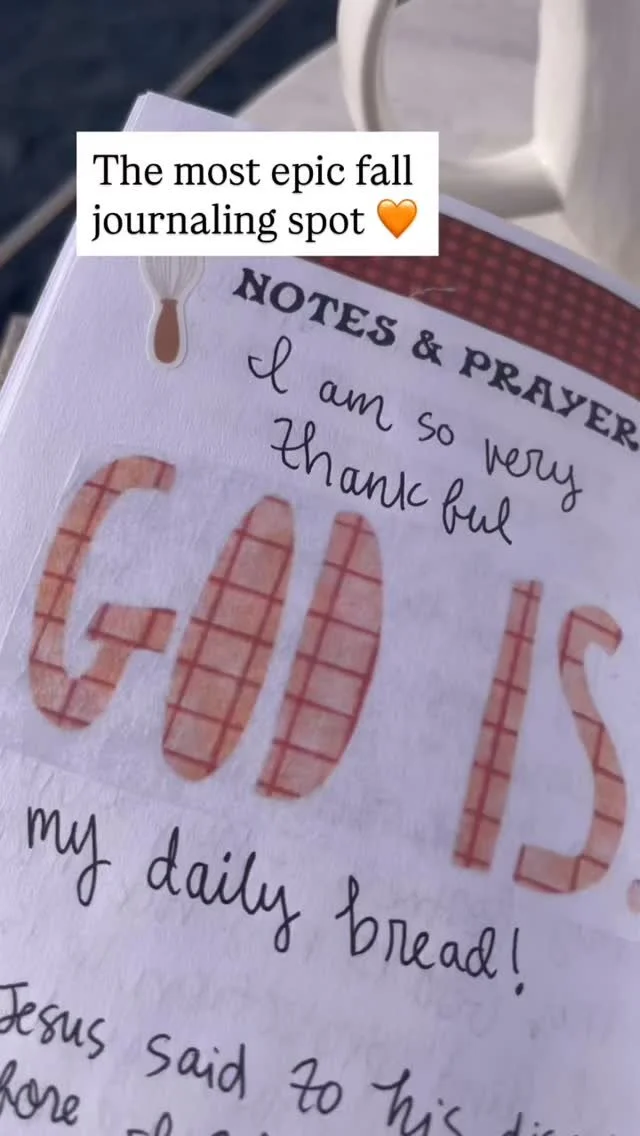 The most epic fall
journaling spot 🧡
NOTES & PRAYER
I am so very
thankful
GOD IS
my daily bread!
Jesus said to his